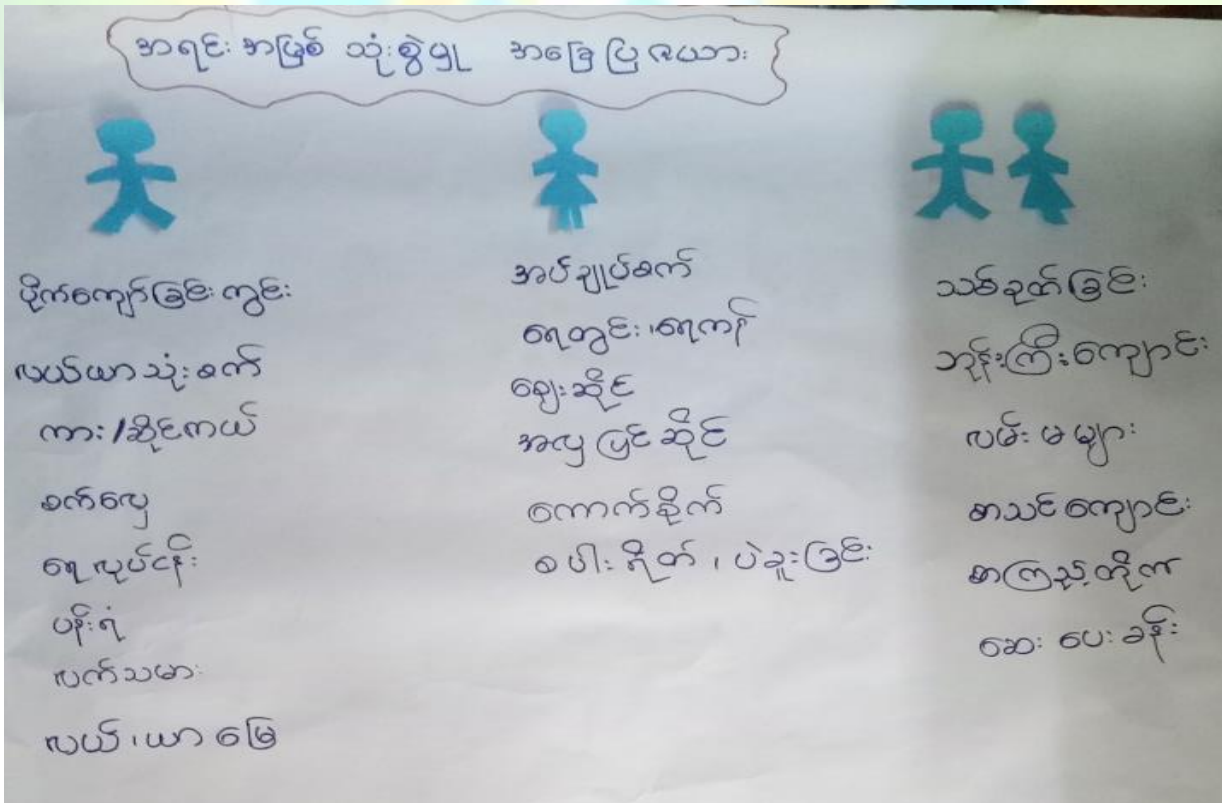 အရင်းအမြစ် သုံးစွဲမှု အခြေပြ ဇယား
ပိုက်ကျော်ခြင်း ကွင်း
လယ်ယာသုံး စက်
ကား/ဆိုင်ကယ်
စက်လှေ
ရေလုပ်ငန်း
ပန်းရံ
လက်သမား
လယ်၊ယာ မြေ
အပ်ချုပ်စက်
ရေတွင်း၊ရေကန်
ဈေးဆိုင်
အလှပြင်ဆိုင်
ကောက်စိုက်
စပါးရိတ်၊ ပဲခူးခြင်း
သစ်ခုတ်ခြင်း
ဘုန်းကြီးကျောင်း
လမ်းမများ
စာသင်ကျောင်း
စာကြည့်တိုက
ဆေး ပေးခန်း